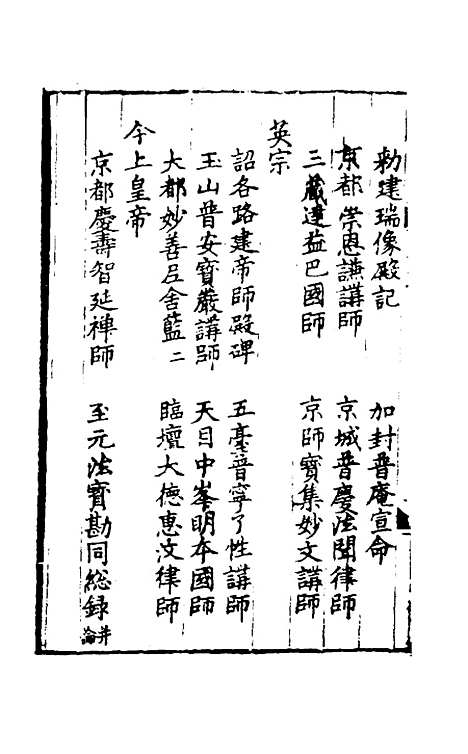 勅建瑞像殿記　加封普庵宣命
京都崇恩謙講師　京城普慶法聞律師
三藏達益巴國師　京師寳集妙文講師
英宗
詔各路建帝師殿碑　五臺普寧了性講師
玉山普安寳嚴講師　天目中峯明本國師
大都妙善尼舍藍二　臨壇大德惠汶律師
今上皇帝
京都慶壽智延禅師　至元法寳勘同総録并論